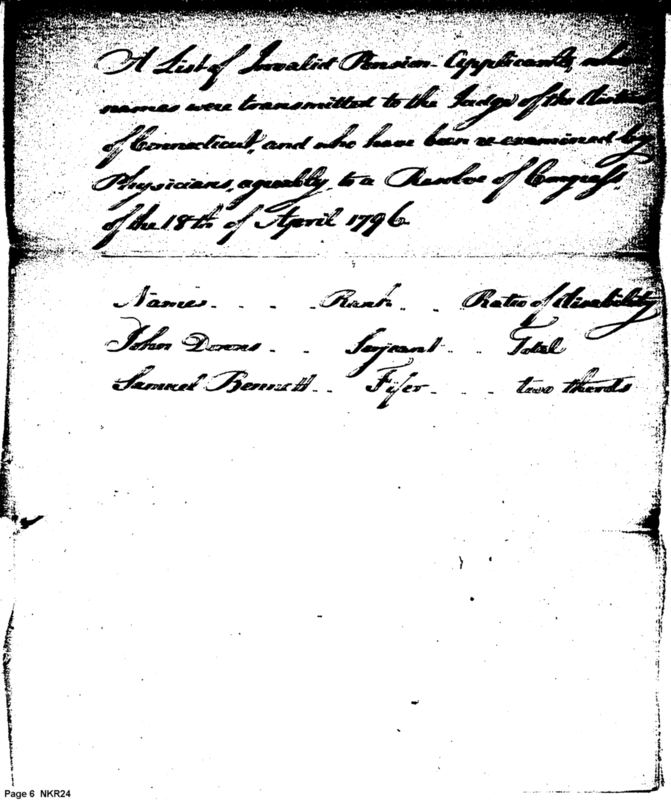 A List of Invalid Pension Applicants, whose
names were transmitted to the Judge of the District
of Connecticut, and who have been re-examined by
Physicians, agreably, to a Resolve of Congress,
of the 18th of April 1796
Names . . . . Rank . . Ratio of disability
John Downs . . Serjeant . . Total
Samuel Bennett . . Fifer . . . two thirds
Page 6 NKR24